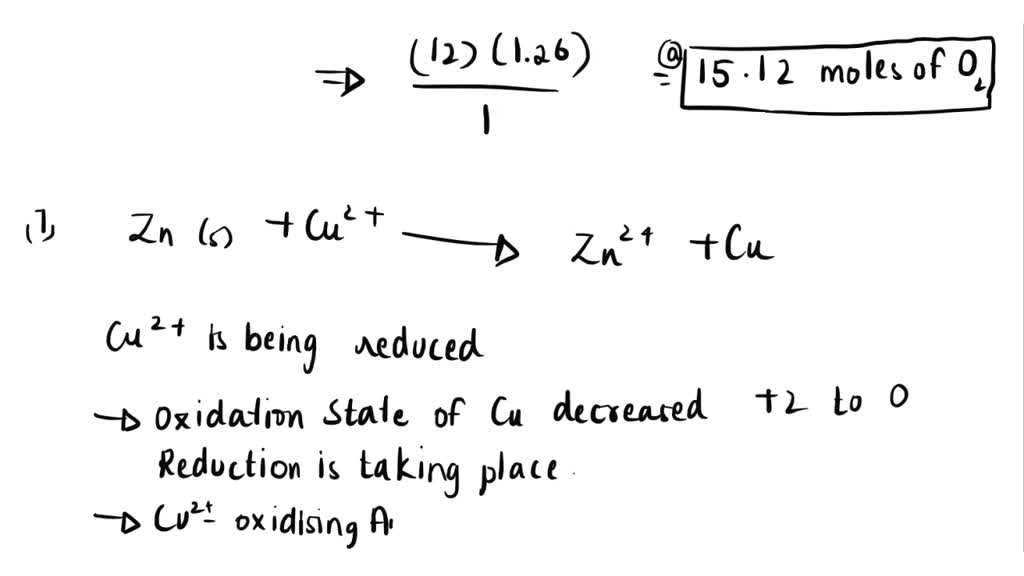 ⇒ (12)(1.26) / 1 @ 15.12 moles of O₂
(7) Zn (s) + Cu²⁺ → Zn²⁺ + Cu
Cu²⁺ is being reduced
→ Oxidation State of Cu decreased +2 to 0
Reduction is taking place.
→ Cu²⁺ - oxidising A